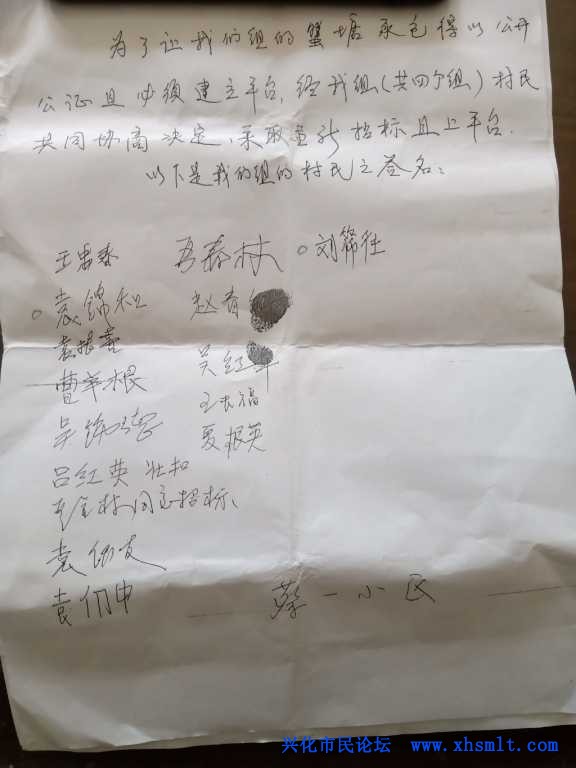 为了让我们组的蟹塘承包得以公开
公证且必须建立平台，经我组（共四个组）村民
共同协商决定，采取重新招标且上平台．
以下是我们组的村民之签名：
刘
袁锦和
赵
袁根
曹 根
吴红
王长福
吴
夏根英
吕红英
同意招标、
袁 友
袁
蔡一小区
兴化市民论坛 www.xhsmlt.com